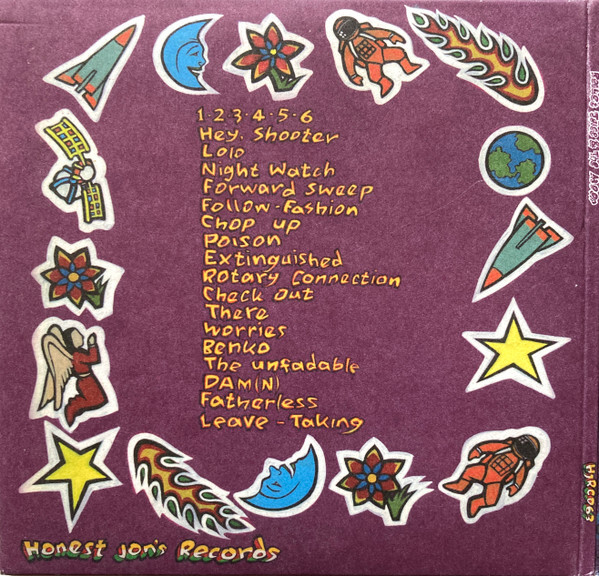 1·2·3·4·5·6
Hey, Shooter
Lolo
Night Watch
Forward Sweep
Follow-Fashion
Chop up
Poison
Extinguished
Rotary Connection
Check Out
There
Worries
Benko
The unfadable
DAM(N)
Fatherless
Leave-Taking
Honest Jon's Records
HJRCD63